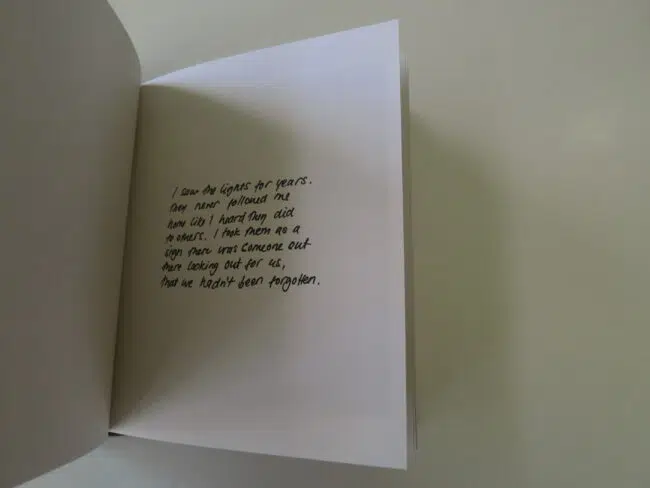 I saw the lights for years.
They never followed me
home like I heard they did
to others. I took them as a
sign there was someone out
there looking out for us,
that we hadn't been forgotten.